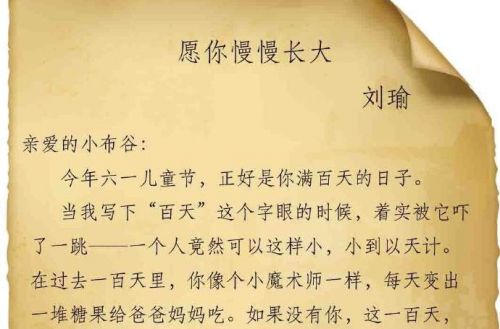 愿你慢慢长大
刘瑜
亲爱的小布谷：
今年六一儿童节，正好是你满百天的日子。
当我写下“百天”这个字眼的时候，着实被它吓
了一跳——一个人竟然可以这样小，小到以天计。
在过去一百天里，你像个小魔术师一样，每天变出
一堆糖果给爸爸妈妈吃。如果没有你，这一百天，